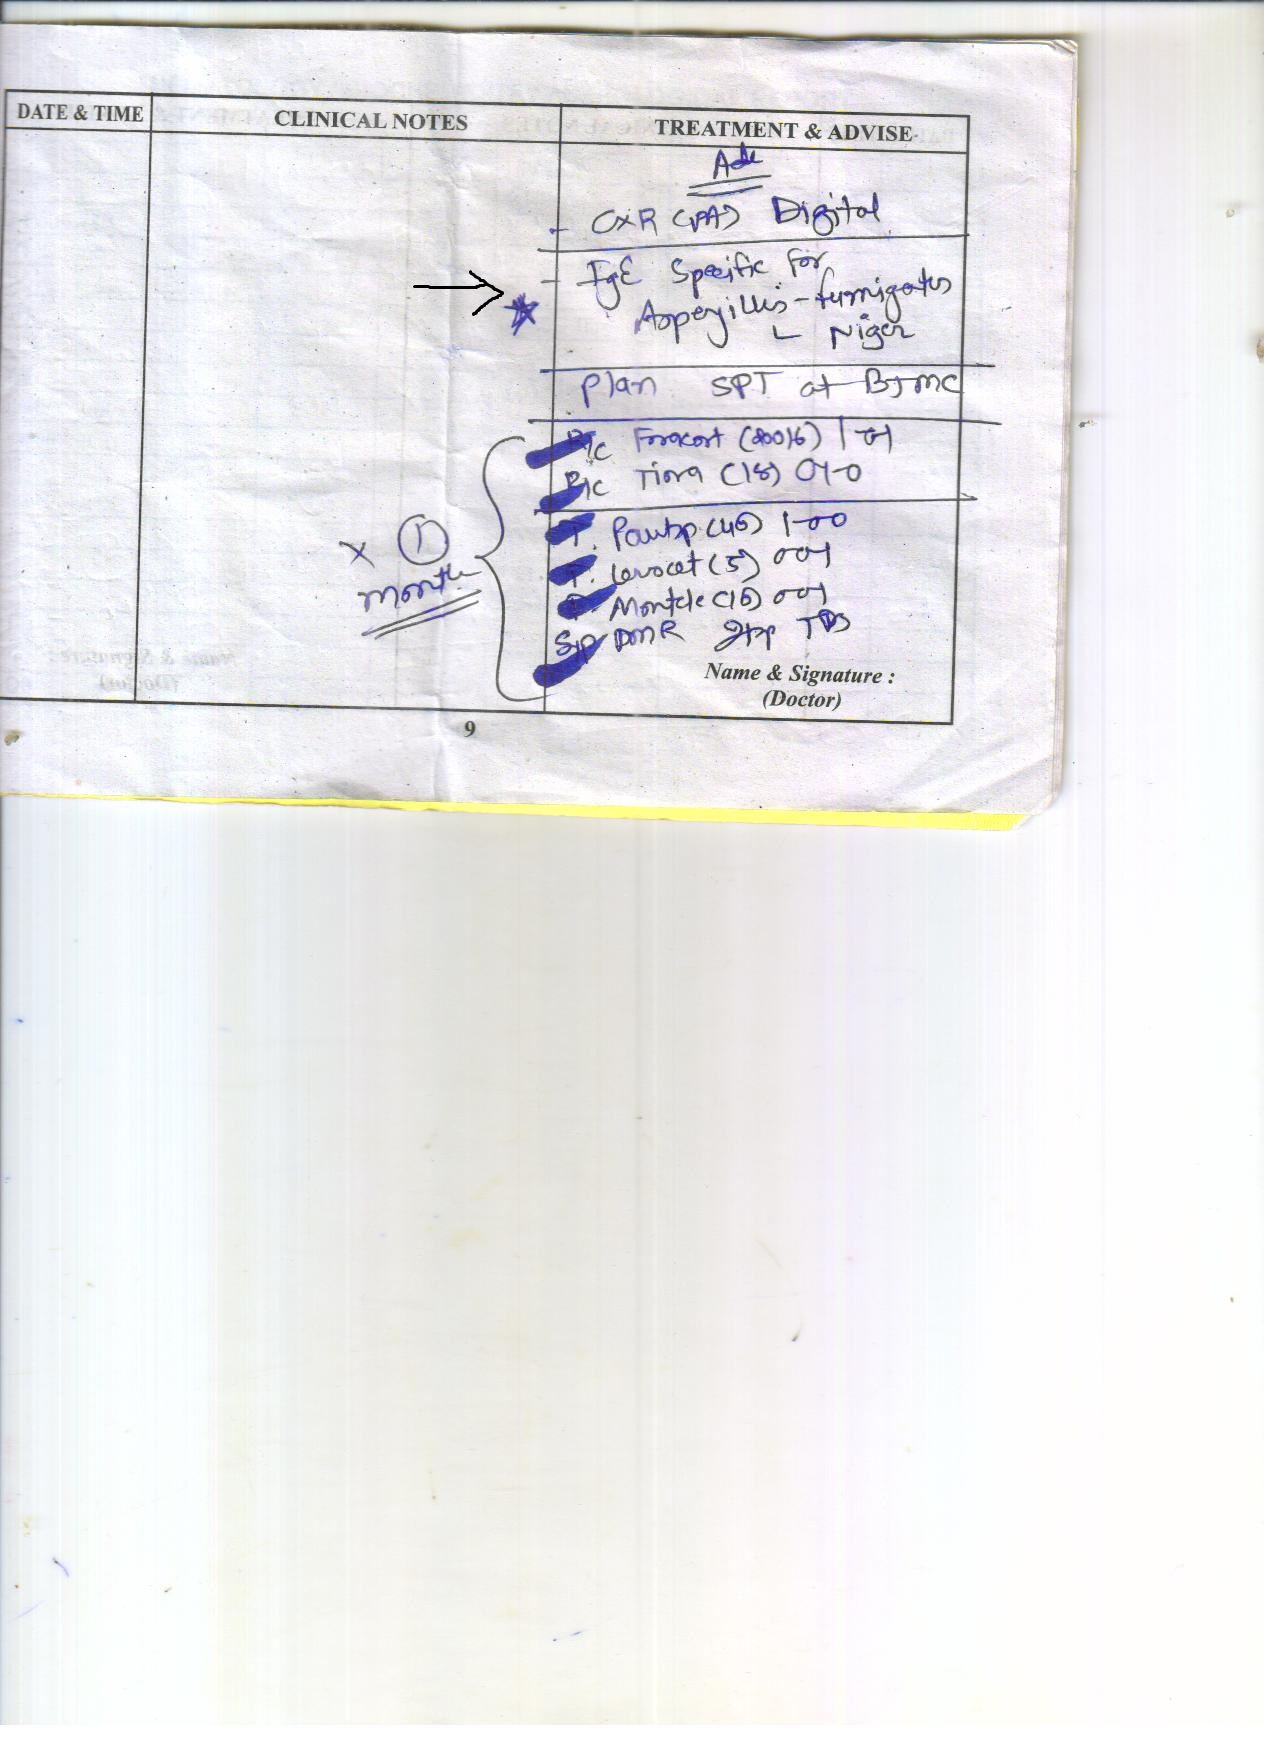 DATE & TIME CLINICAL NOTES TREATMENT & ADVISE
Adv
- CXR (PA) Digital
- IgE Specific for
Aspergillus - fumigatus
Niger
Plan SPT at BJMC
R/c Foracort 1-0-1
R/c Tiova (18) 0-1-0
T. (40) 1-0-0
T. Levocet (5) 0-0-1
(10) 0-0-1
Syp DMR TDS
x 1
month
Name & Signature :
(Doctor)
9